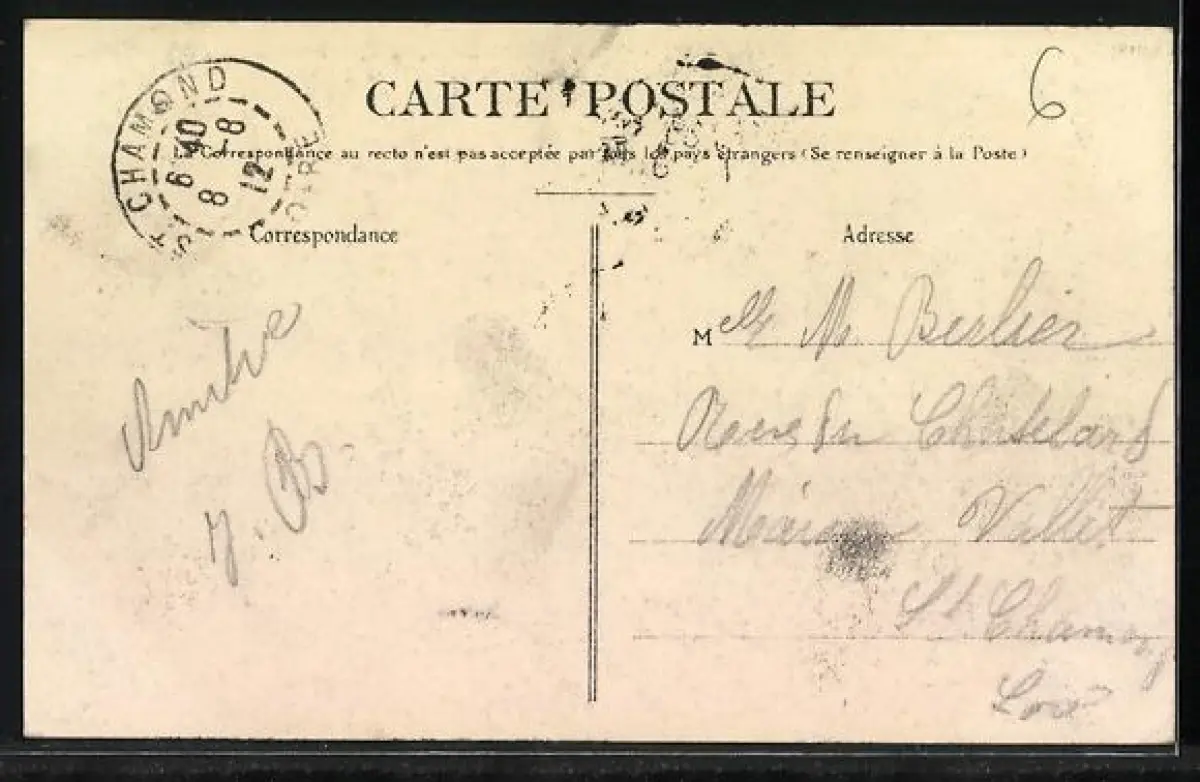 CARTE POSTALE
6
La Correspondance au recto n'est pas acceptée par tous les pays étrangers (Se renseigner à la Poste)
ST CHAMOND
6 40
8 - 8
12
LOIRE
Correspondance
Adresse
M elle M. Berlier
du Chatelard
Maison Vallet
St Chamond
Loire
Amitié
J. B